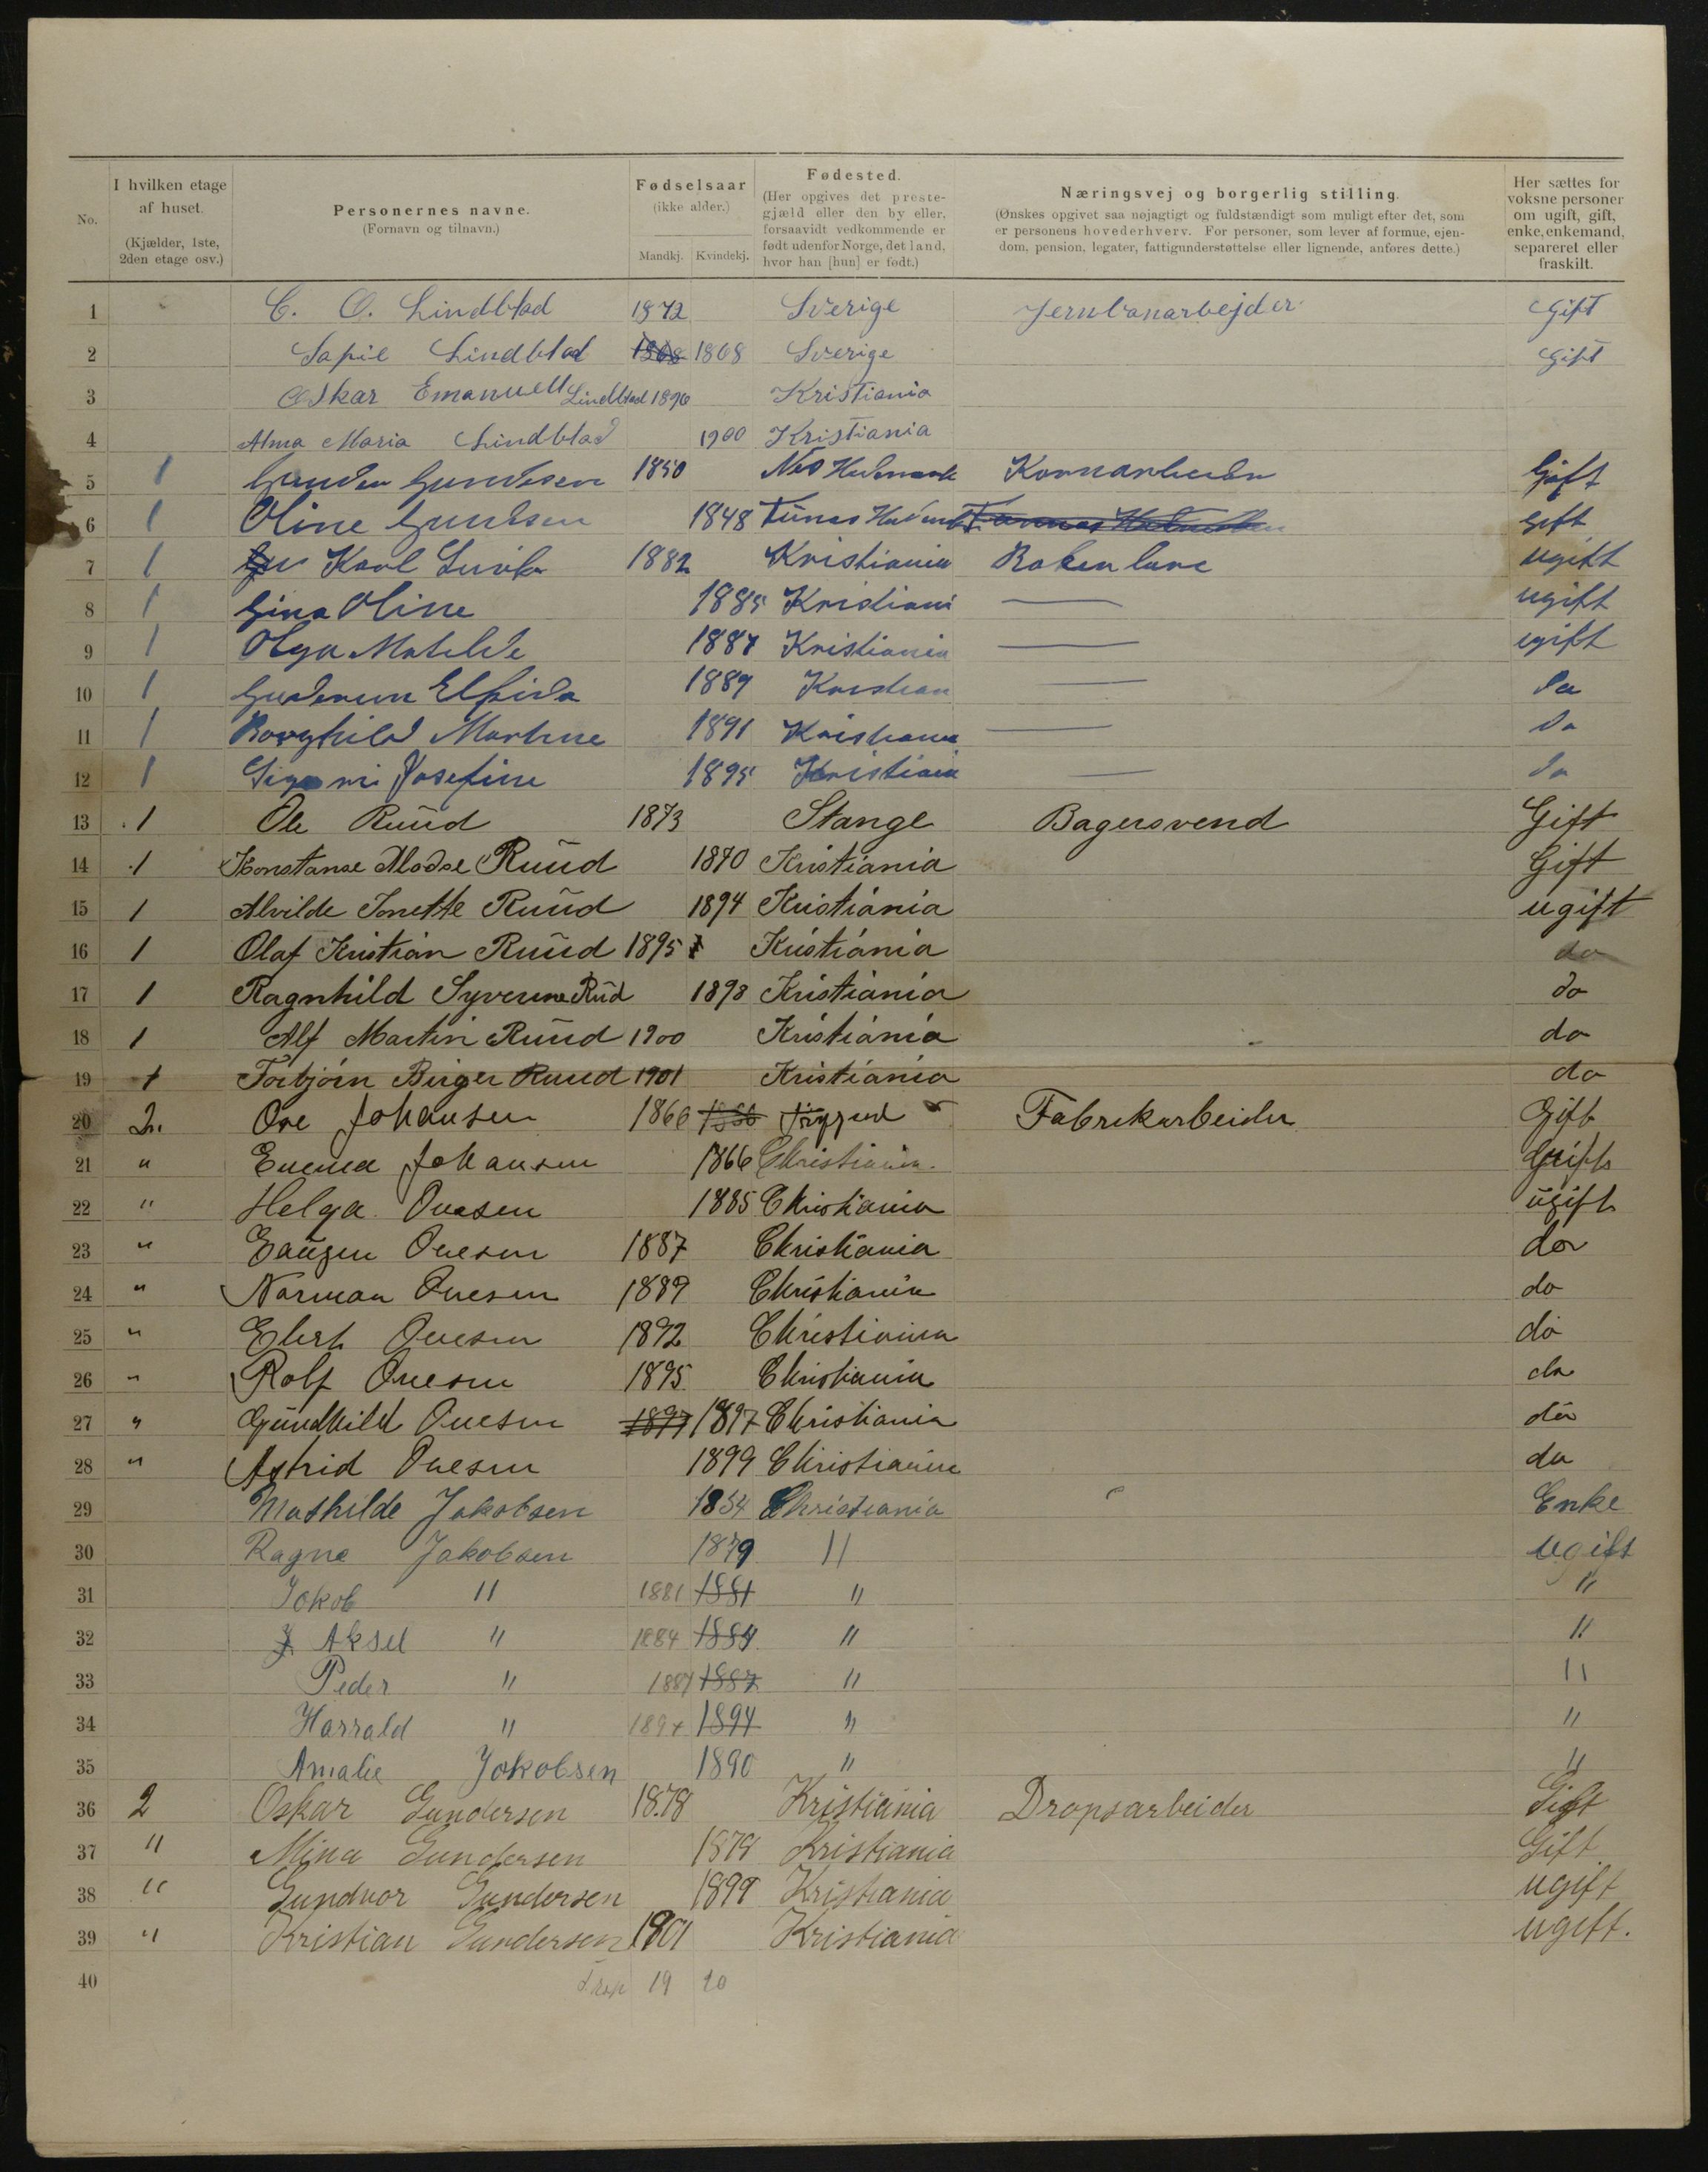 No.
I hvilken etage af huset. (Kjælder, 1ste, 2den etage osv.)
Personernes navne. (Fornavn og tilnavn.)
Fødselsaar (ikke alder.) Mandkj. Kvindekj.
Fødested. (Her opgives det prestegjæld eller den by eller, forsaavidt vedkommende er født udenfor Norge, det land, hvor han [hun] er født.)
Næringsvej og borgerlig stilling. (Ønskes opgivet saa nøjagtigt og fuldstændigt som muligt efter det, som er personens hovederhverv. For personer, som lever af formue, ejendom, pension, legater, fattigunderstøttelse eller lignende, anføres dette.)
Her sættes for voksne personer om ugift, gift, enke, enkemand, separeret eller fraskilt.
1 C. O. Lindblad 1872 Sverige Jernbanarbejder Gift
2 Sofie Lindblad 1868 1868 Sverige Gift
3 Oskar Emanuell Lindblad 1896 Kristiania
4 Alma Maria Lindblad 1900 Kristiania
5 1 Gundersen 1850 Gift
6 1 Oline 1848 Gift
7 1 Karl 1882 Kristiania ugift
8 1 Gina Oline 1885 Kristiani — ugift
9 1 Olga Matilde 1887 Kristiania — ugift
10 1 1889 Kristian — do
11 1 Borghild Martine 1891 Kristiania — do
12 1 Josefine 1895 Kristiania — do
13 1 Ole Ruud 1873 Stange Bagersvend Gift
14 1 Konstanse Ruud 1870 Kristiania Gift
15 1 Alvilde Jonette Ruud 1894 Kristiania ugift
16 1 Olaf Kristian Ruud 1895 Kristiania do
17 1 Ragnhild Syverine Rud 1898 Kristiania do
18 1 Alf Martin Ruud 1900 Kristiania do
19 1 Torbjørn Birger Ruud 1901 Kristiania do
20 2 Ove Johansen 1866 Fabrikarbeider Gift
21 " Emma Johansen 1866 Christiania. Gift
22 " Helga Ovesen 1885 Christiania ugift
23 " Eaugen Ovesen 1887 Christiania do
24 " Norman Ovesen 1889 Christiania do
25 " Ovesen 1892 Christiania do
26 " Rolf Ovesen 1895 Christiania do
27 " Gundhild Ovesen 1897 1897 Christiania do
28 " Astrid Ovesen 1899 Christiania do
29 Mathilde Jakobsen 1854 Christiania Enke
30 Ragna Jakobsen 1879 " ugift
31 Jakob " 1881 1881 " "
32 Aksel " 1884 1884 " "
33 Peder " 1887 1887 " "
34 Harrald " 1894 1894 " "
35 Amalie Jakobsen 1890 " "
36 2 Oskar Gundersen 1878 Kristiania Dropsarbeider Gift
37 " Mina Gundersen 1879 Kristiania Gift
38 " Gundvor Gundersen 1899 Kristiania ugift
39 " Kristian Gundersen 1901 Kristiania ugift.
40 19 20